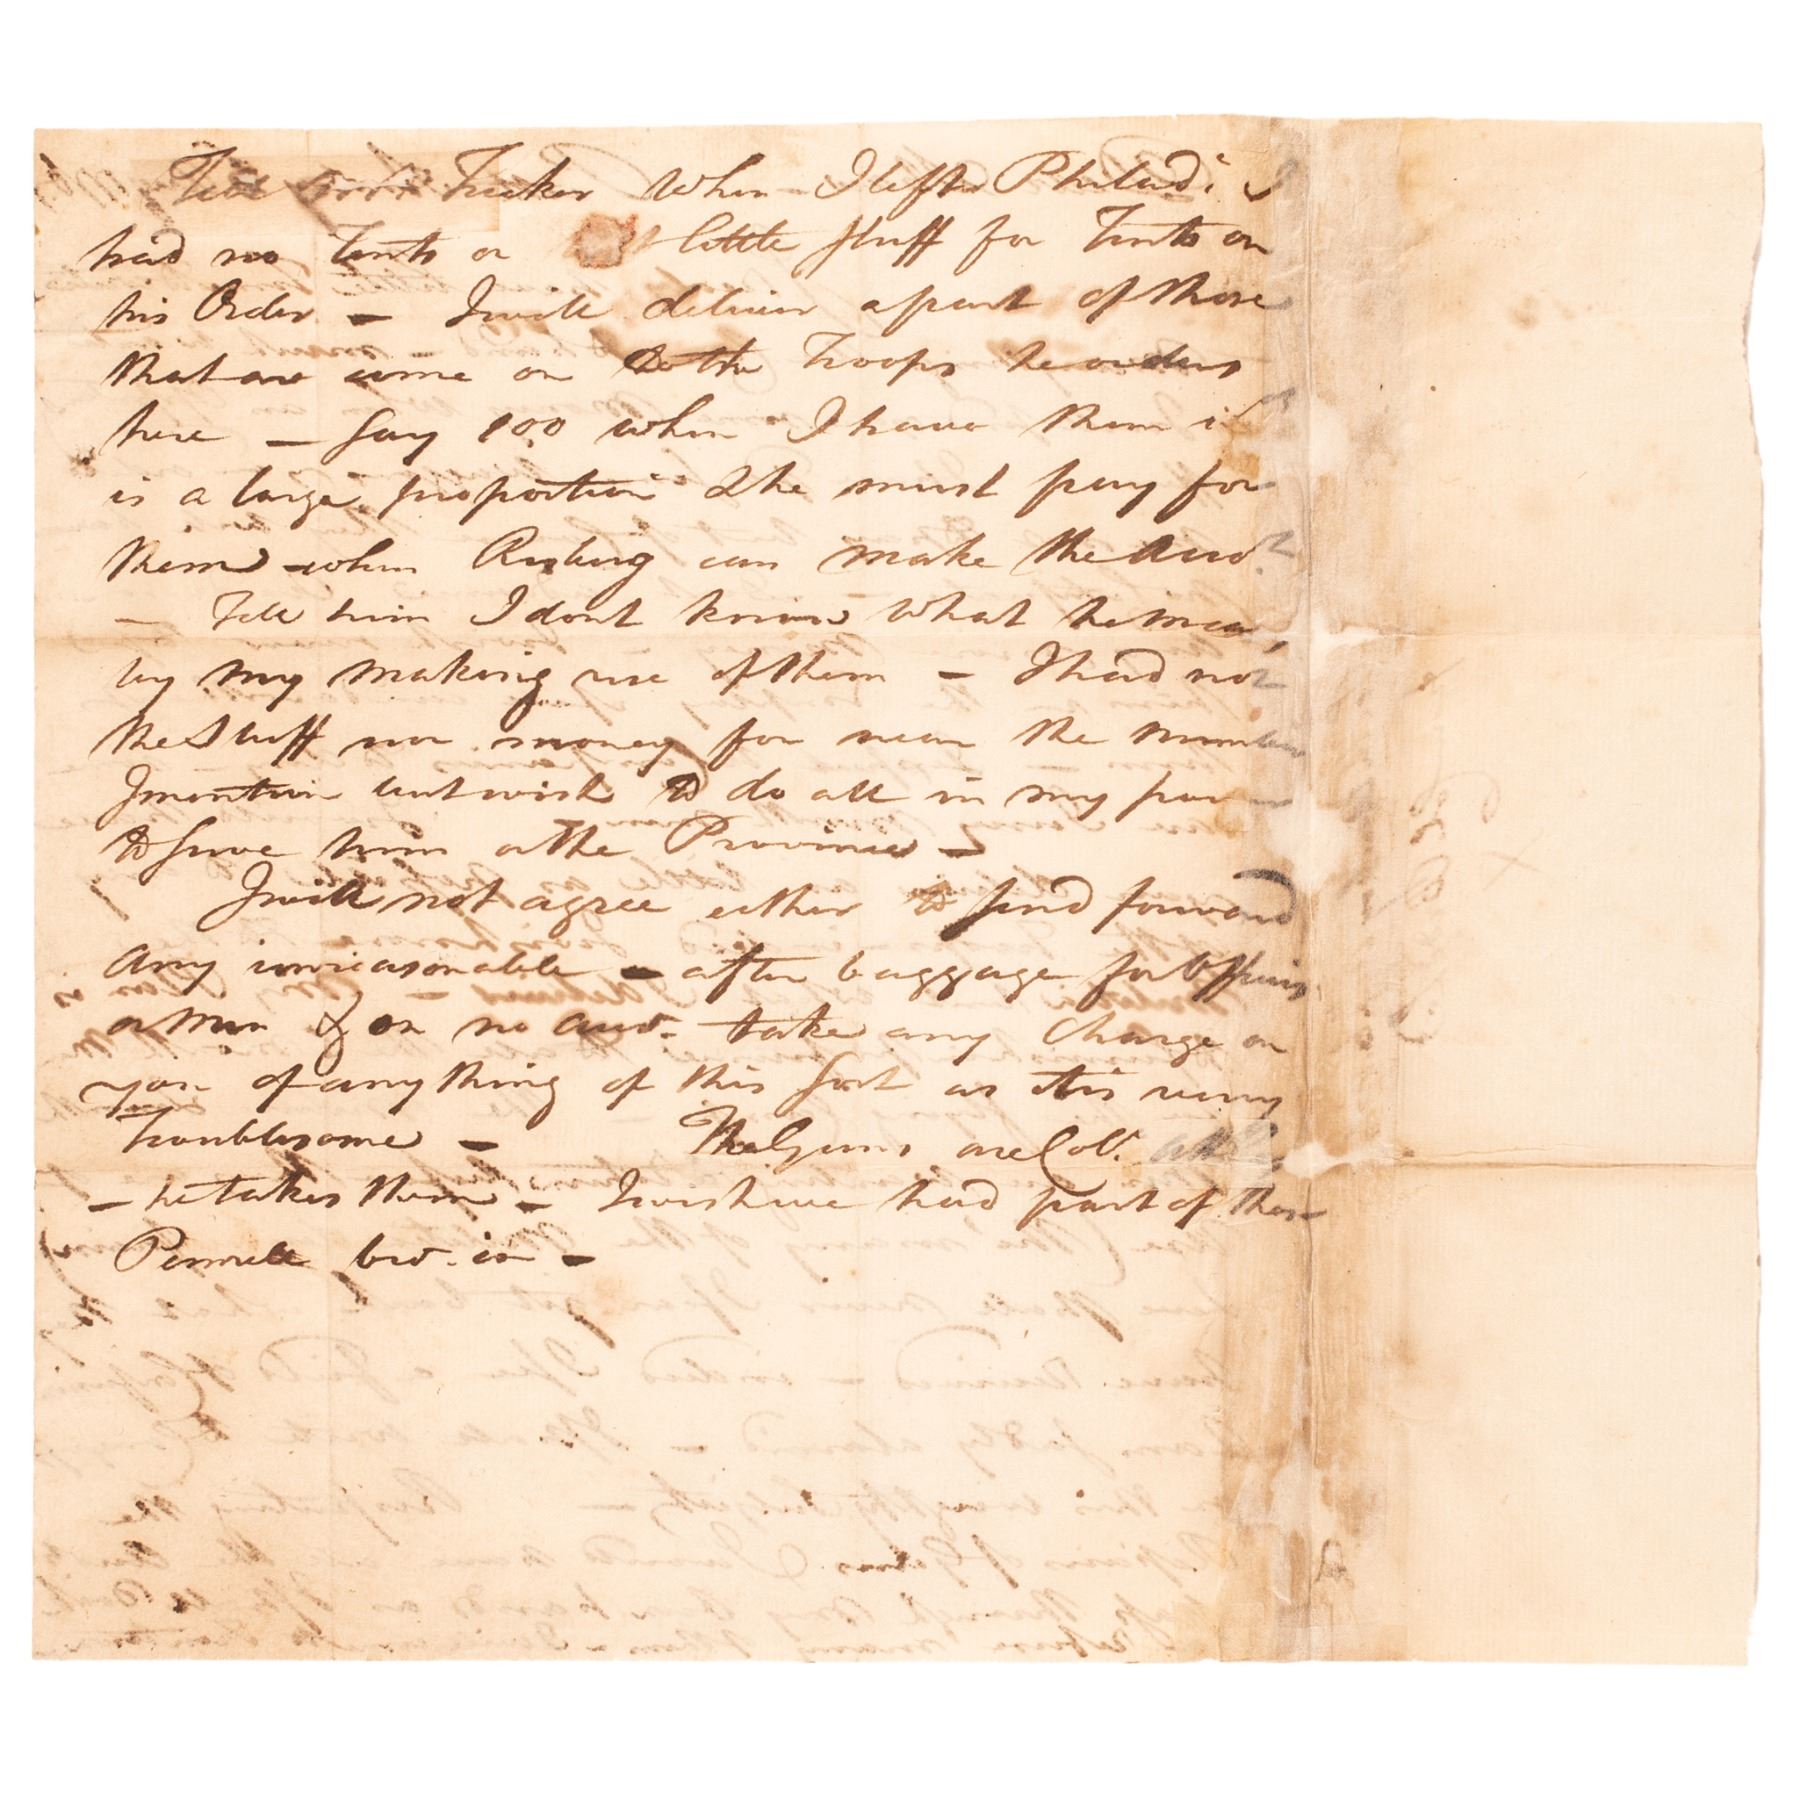 Tell Mr Tucker when I left Philad: I
had no Tents or little stuff for Tents on
his Order - I will deliver a part of those
that are come on to the Troops he orders
here - say 100 when I have them it
is a large proportion & he must pay for
them when can make the Acco.t
- Tell him I dont know what he mean
by my making use of them - I had not
the Stuff nor money for near the number
I mention but wish to do all in my power
to serve him or the Province -
I will not agree either to send forward
any unreasonable - after baggage for Officers
or Men & on no Acco. take any Charge on
you of any thing of this sort as tis very
Troublesome - The Guns are Col.
- he takes them - I wish we had part of thos
in -